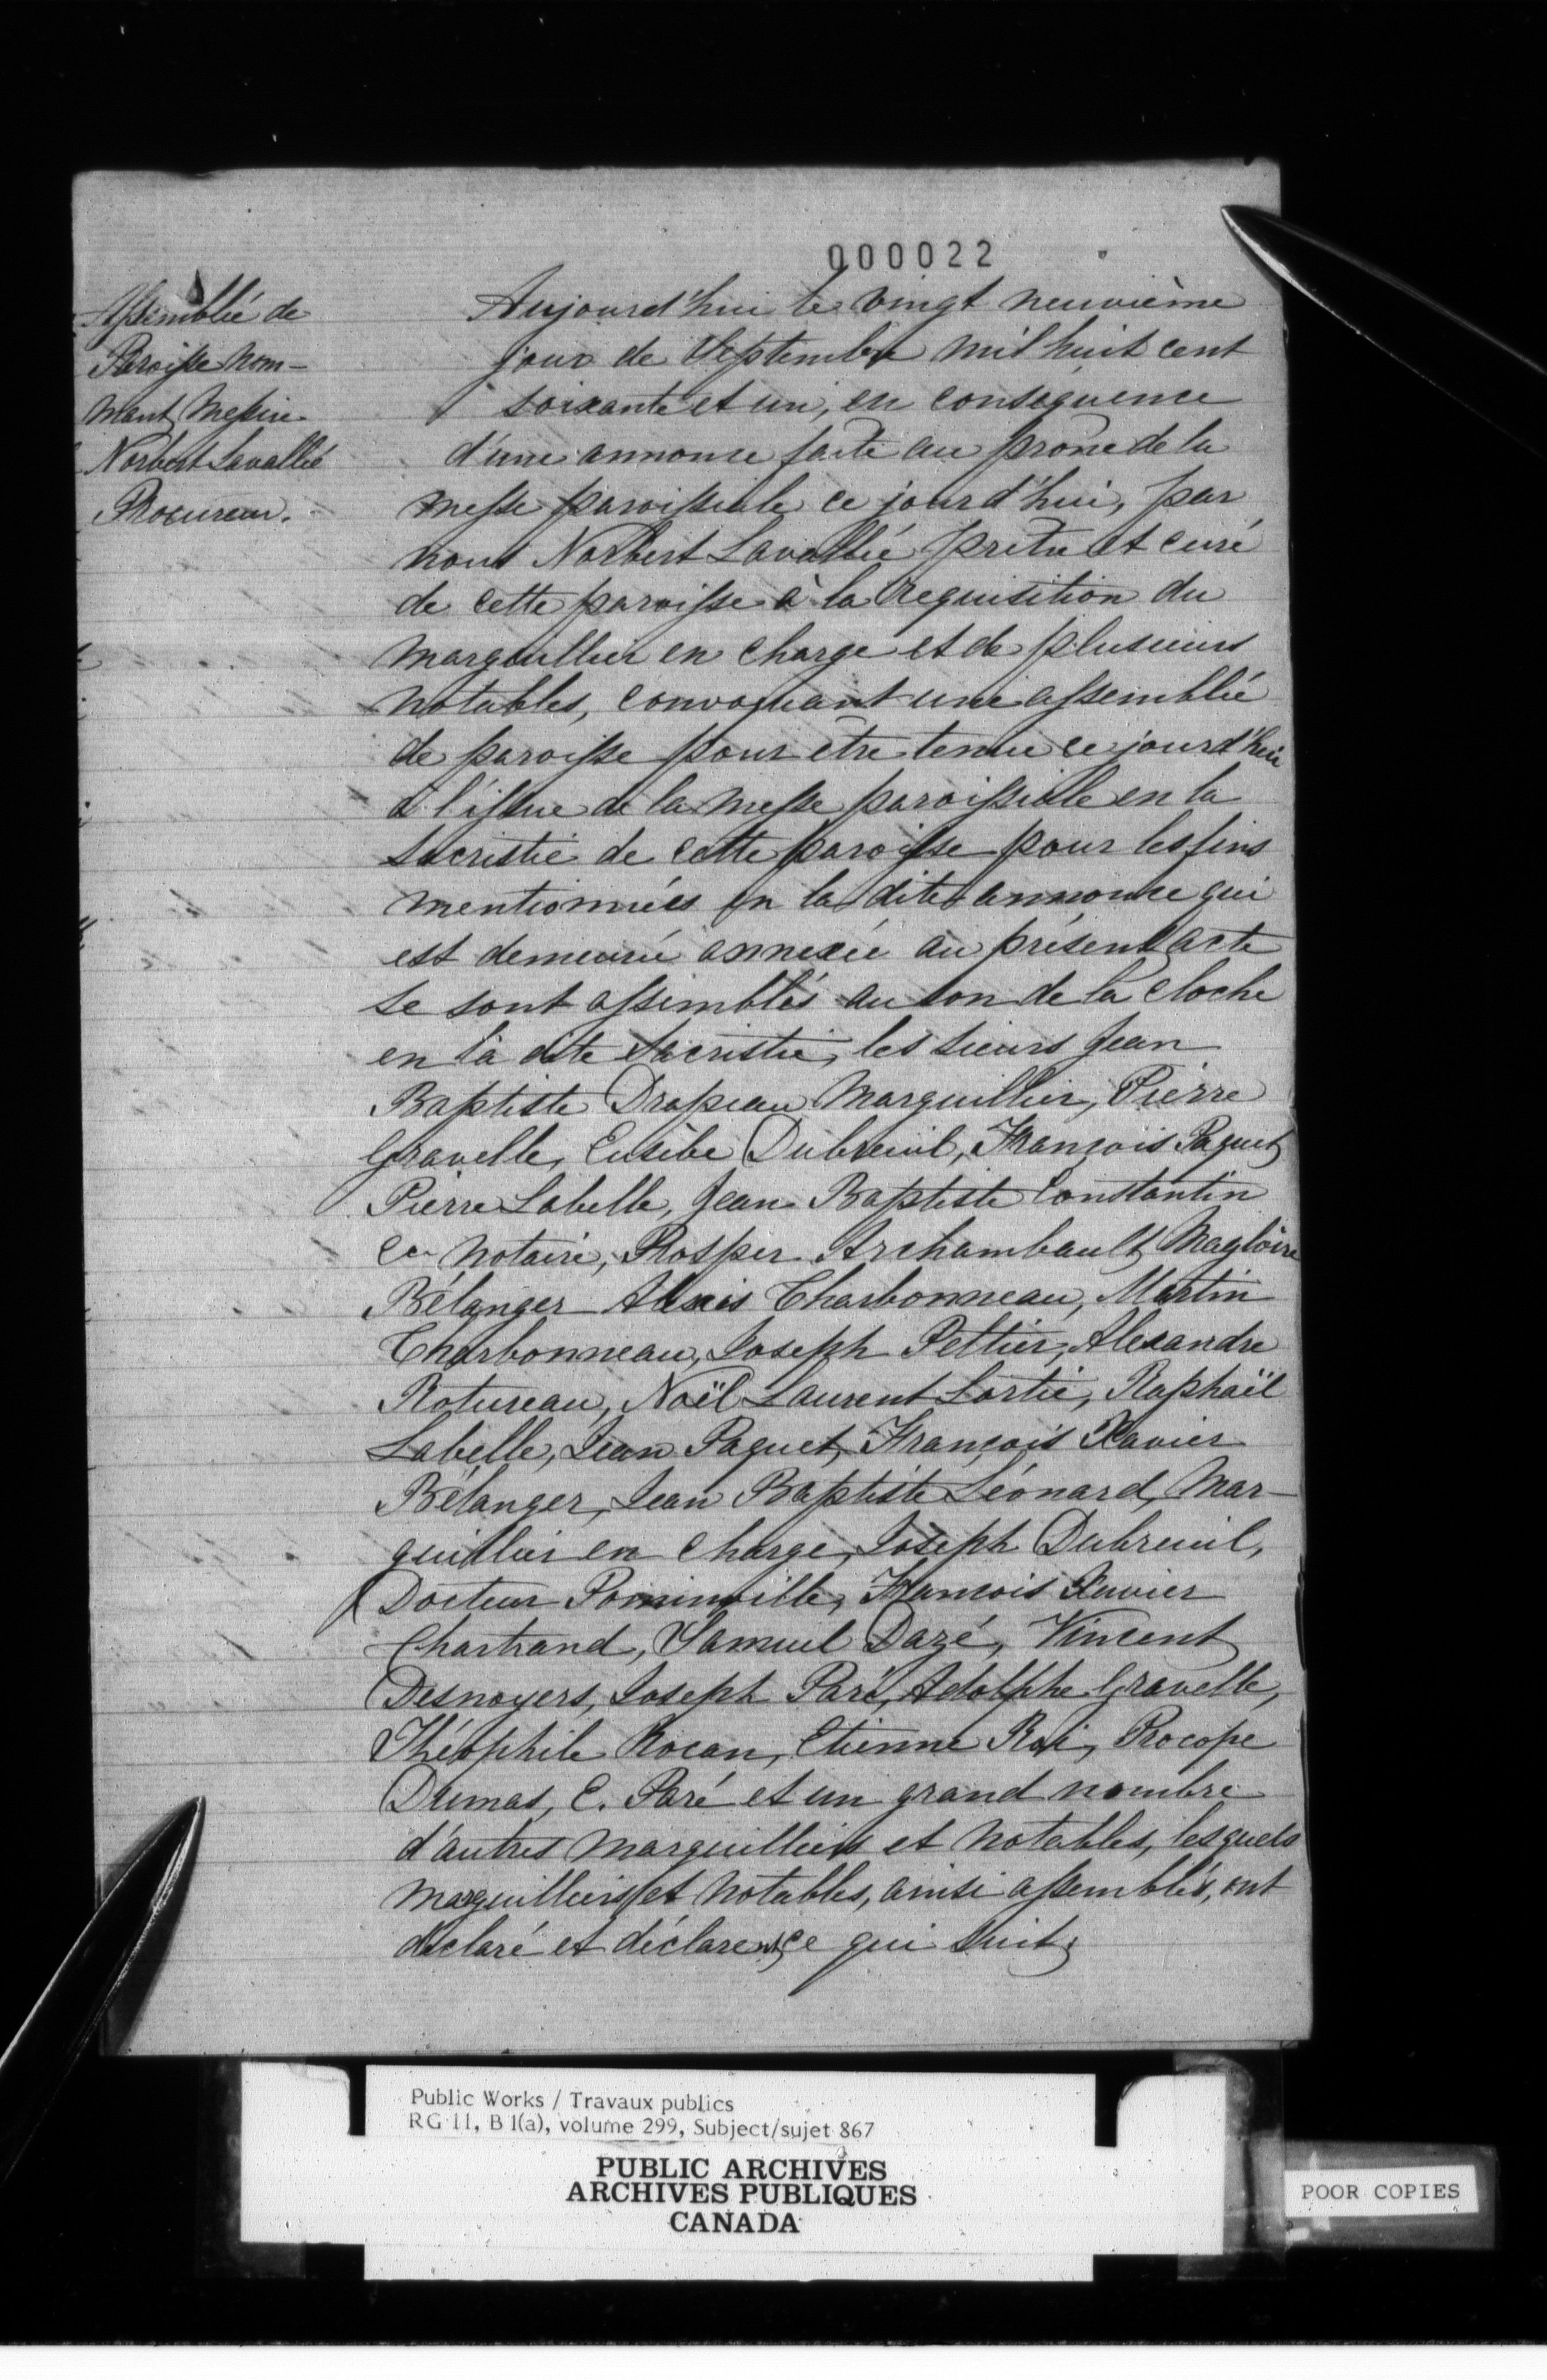 000022
Assemblée de
Paroisse nom-
mant Messire
Norbert Lavallée
Procureur.
Aujourd'hui le vingt neuvième
jour de Septembre mil huit cent
soixante et un, en conséquence
d'une annonce faite au prône de la
messe paroissiale ce jourd'hui, par
nous Norbert Lavallée prêtre et curé
de cette paroisse à la requisition du
marguillier en charge et de plusieurs
notables, convoquant une assemblée
de paroisse pour être tenue ce jourd'hui
à l'issue de la messe paroissiale en la
Sacristie de cette paroisse pour les fins
mentionnées en la dite annonce qui
est demeurée annexée au présent acte
se sont assemblés au son de la cloche
en la dite Sacristie, les sieurs Jean
Baptiste Drapeau Marguillier, Pierre
Gravelle, Eusèbe Dubreuil, François Paquet
Pierre Labelle, Jean Baptiste Constantin
Ecr Notaire, Prosper Archambault Magloire
Bélanger Alexis Charbonneau, Martin
Charbonneau, Joseph Peltier, Alexandre
Rotureau, Noël Laurent Lortie, Raphaël
Labelle, Jean Paquet, François Xavier
Bélanger, Jean Baptiste Léonard, Mar-
guillier en charge, Joseph Dubreuil,
Docteur Pominville, François Xavier
Chartrand, Samuel Dazé, Vincent
Desnoyers, Joseph Paré, Adolphe Gravelle,
Théophile Rocan, Etienne Roi, Procope
Dumas, C. Paré et un grand nombre
d'autres Marguilliers et Notables, lesquels
Marguilliers et Notables, ainsi assemblés, ont
déclaré et déclarent ce qui suit,
Public Works / Travaux publics
RG 11, B 1(a), volume 299, Subject/sujet 867
PUBLIC ARCHIVES
ARCHIVES PUBLIQUES
CANADA
POOR COPIES